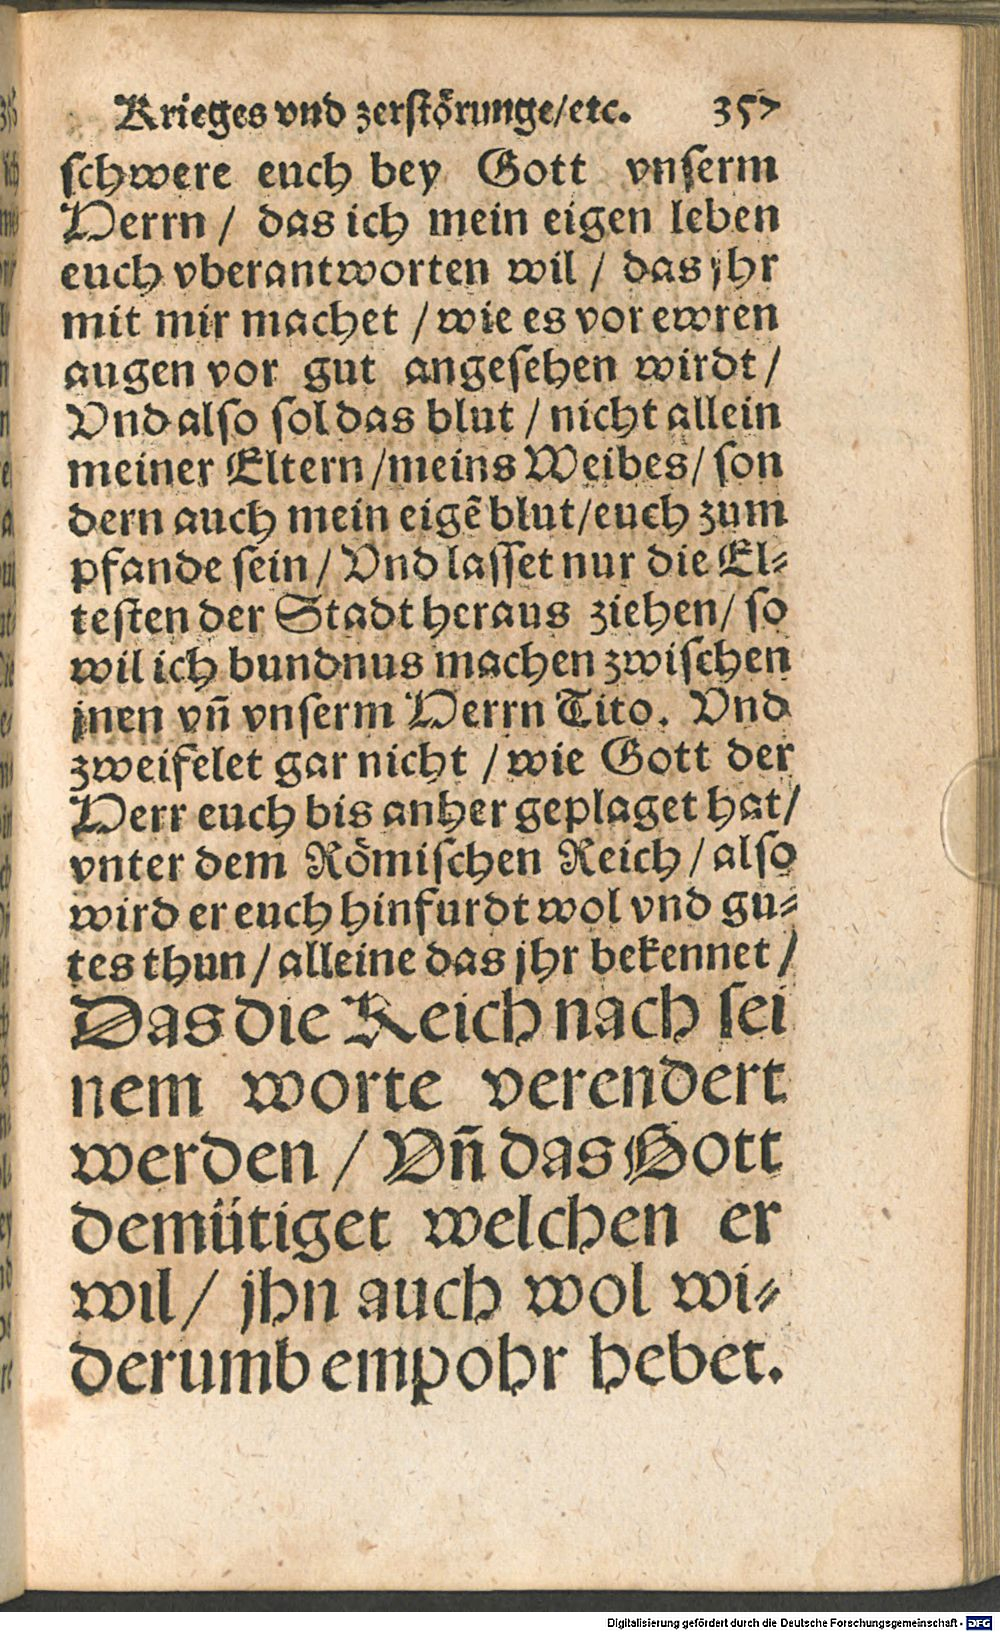 Krieges vnd zerstörunge/etc. 357
schwere euch bey Gott vnserm
Herrn / das ich mein eigen leben
euch vberantworten wil / das jhr
mit mir machet / wie es vor ewren
augen vor gut angesehen wirdt /
Vnd also sol das blut / nicht allein
meiner Eltern /meins Weibes/ son
dern auch mein eigẽ blut/euch zum
pfande sein / Vnd lasset nur die El-
testen der Stadt heraus ziehen/ so
wil ich bundnus machen zwischen
jnen vñ vnserm Herrn Tito. Vnd
zweifelet gar nicht / wie Gott der
Herr euch bis anher geplaget hat/
vnter dem Römischen Reich / also
wird er euch hinfurdt wol vnd gu-
tes thun / alleine das jhr bekennet /
Das die Reich nach sei
nem worte verendert
werden / Vñ das Gott
demütiget welchen er
wil / jhn auch wol wi-
derumb empohr hebet.
Digitalisierung gefördert durch die Deutsche Forschungsgemeinschaft - DFG